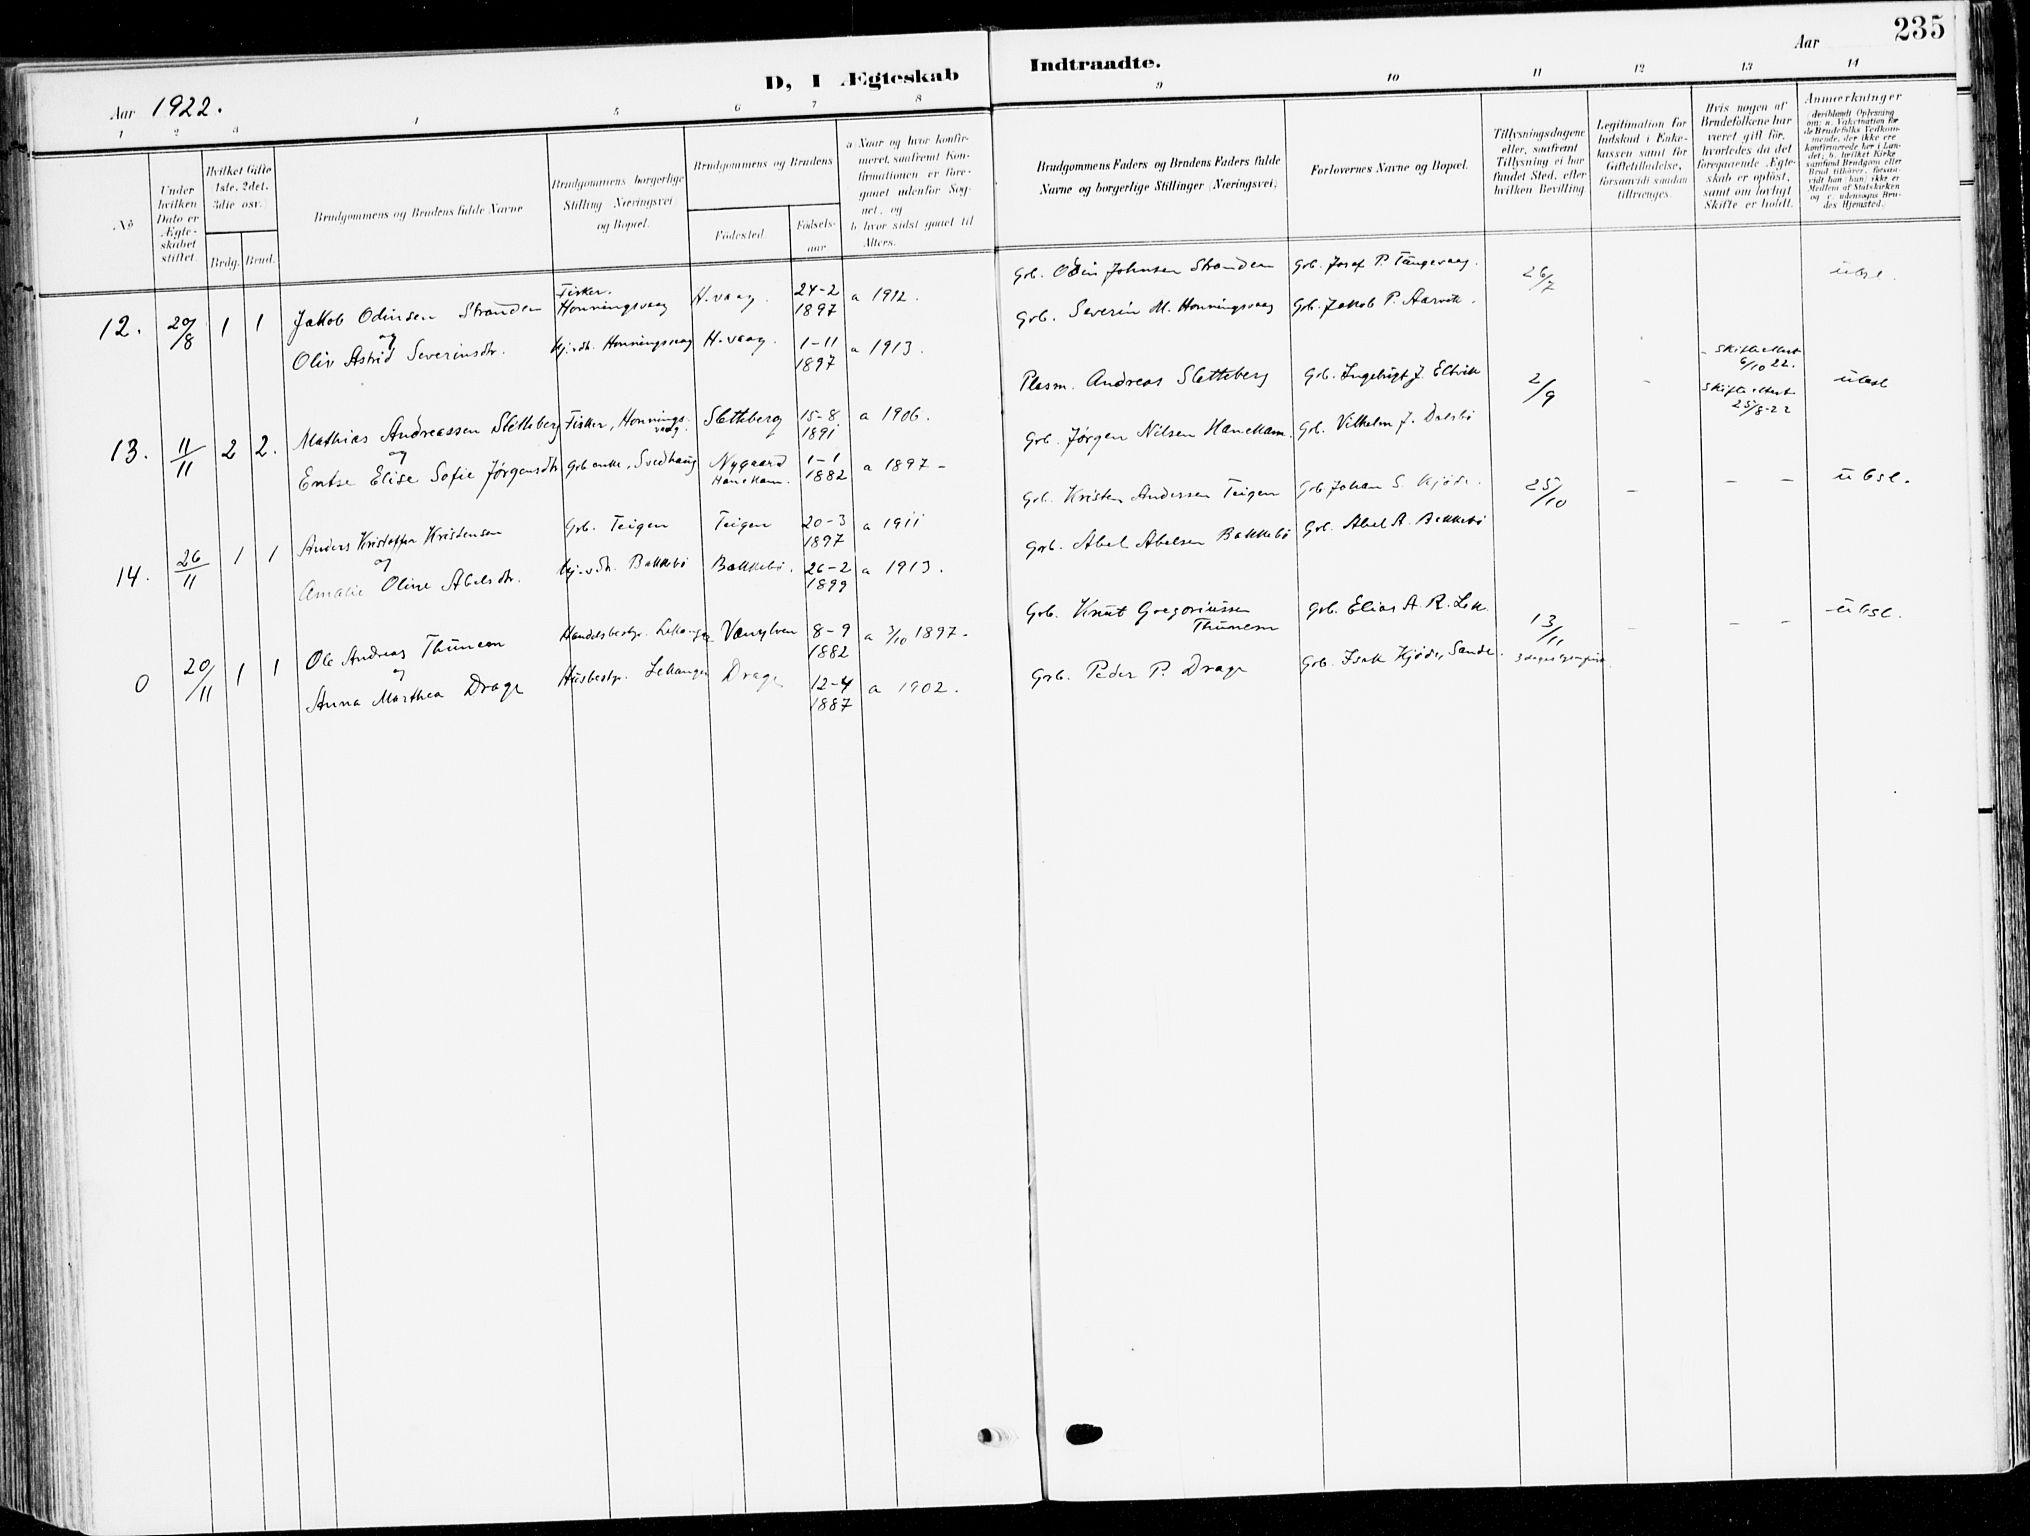 235
D, I Ægteskab
Indtraadte.
Aar 1922.
Aar
1 2 3 4 5 6 7 8
9 10 11 12 13 14
No
Under hvilken Dato er Ægteskabet stiftet.
Hvilket Gifte 1ste, 2det, 3die osv.
Brdg. Brud.
Brudgommens og Brudens fulde Navne
Brudgommens borgerlige Stilling Næringsvei og Bopæl.
Brudgommens og Brudens
Fødested.
Fødselsaar
a Naar og hvor konfirmeret, saafremt Konfirmationen er foregaaet udenfor Sognet, og
b hvor sidst gaaet til Alters.
Brudgommens Faders og Brudens Faders fulde Navne og borgerlige Stillinger (Næringsvei)
Forlovernes Navne og Bopæl.
Tillysningsdagene eller, saafremt Tillysning ei har fundet Sted, efter hvilken Bevilling
Legitimation for Indskud i Enkekassen samt for Giftetilladelse, forsaavidt saadan tiltrænges.
Hvis nogen af Brudefolkene har været gift før, hvorledes da det foregaaende Ægteskab er opløst, samt om lovligt Skifte er holdt.
Anmærkninger
12. 20/8 1 1 Jakob Odinsen Stranden Fisker. Honningsvaag H.vaag. 24-2 1897 a 1912. Grb. Odin Johnsen Stranden Grb. Josef P. Tungevaag. 26/7
og
Oliv Astrid Severinsdtr. Honningsvaag H.vaag. 1-11 1897 a 1913. Grb. Severin M. Honningsvaag Grb. Jakob P. Aarvik.
13. 11/11 2 2. Mathias Andreassen Sletteberg Fisker, Honningsvaag. Sletteberg 15-8 1891 a 1906. Plasm. Andreas Sletteberg Grb. Ingebrigt J. Eltvik 2/9 - Skifteattest 6/10 22.
og
Elise Sofie Jørgensdtr Grb enke, Svedhaug Nygaard Hanekam. 1-1 1882 a 1897 - Grb. Jørgen Nilsen Hanekam. Grb. Vilhelm J. Dalsbø Skifteattest 25/8-22
14. 26/11 1 1 Anders Kristoffer Kristensen Grb. Teigen Teigen 20-3 1897 a 1911 Grb. Kristen Andersen Teigen Grb. Johan S. Kjøde. 25/10 - - -
og
Amalie Olive Abelsdtr. Bakkebø Bakkebø. 26-2 1899 a 1913. Grb. Abel Abelsen Bakkebø Grb. Abel A. Bakkebø
0 20/11 1 1 Ole Andreas Thunem Handelsbestyr. Lekanger Vanylven 8-9 1882 a 3/10 1897. Grb. Knut Gregoriussen Thunem Grb. Elias A. R. 13/11 - - -
og
Anna Marthea Drage Husbestyr. Lekanger Drage 12-4 1887 a 1902. Grb. Peder P. Drage Grb. Isak Kjøde, Sande.